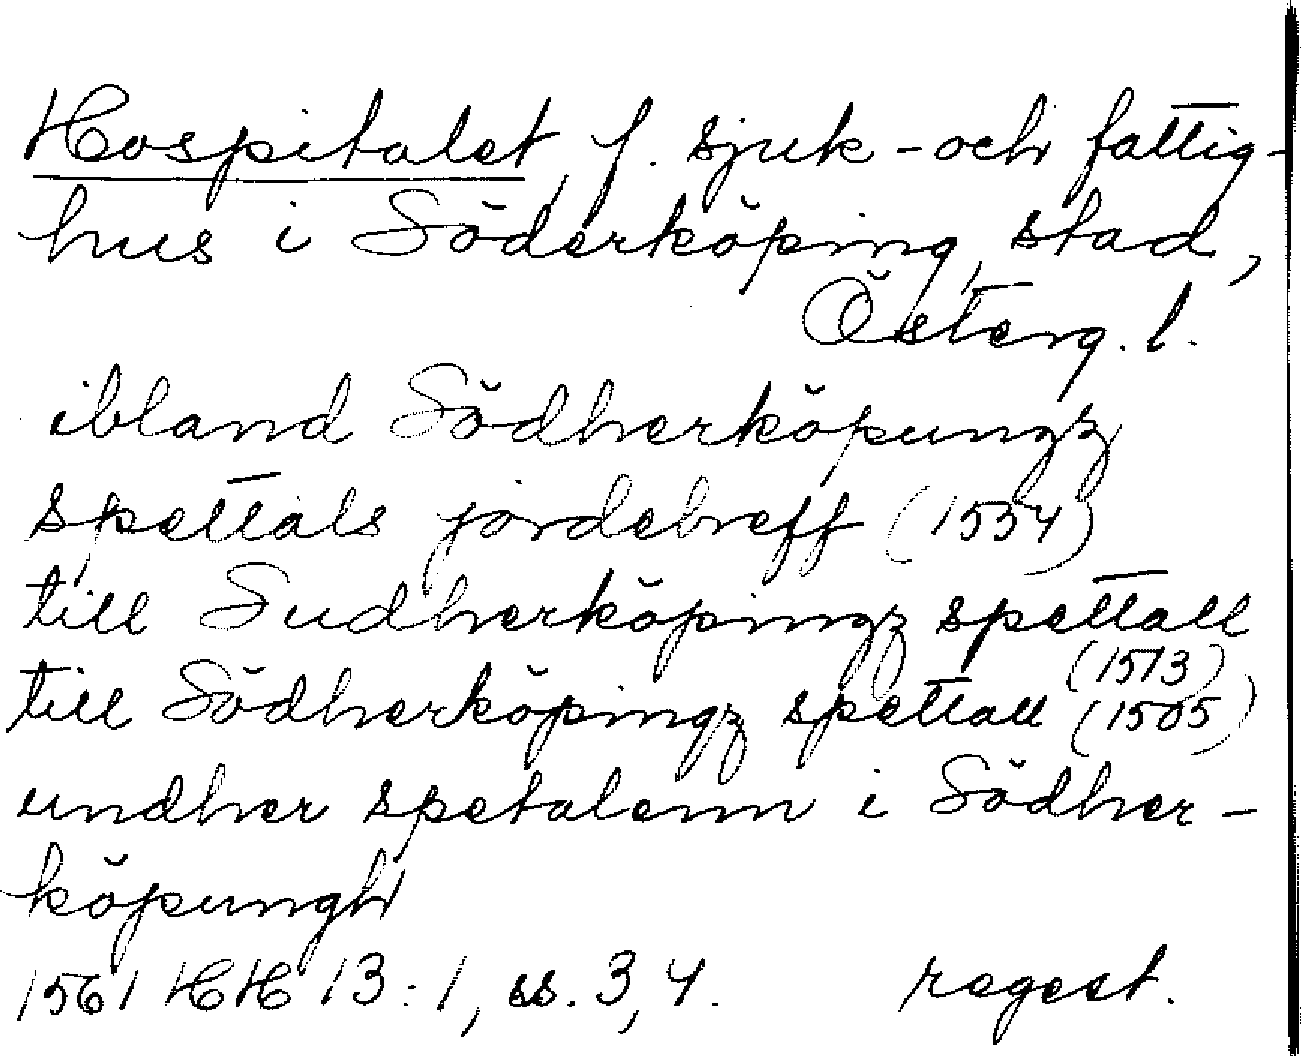 Hospitalet, f. sjuk- och fattig-
hus i Söderköping, stad,
Österg. l.
ibland Södherköpungz
spettals jordebreff (1554)
till Sudherköpingz spettall
(1513)
till Södherköpingz spettall (1505)
undher spetalenn i Södher-
köpungh
1561 HH 13:1, ss. 3, 4. regest.